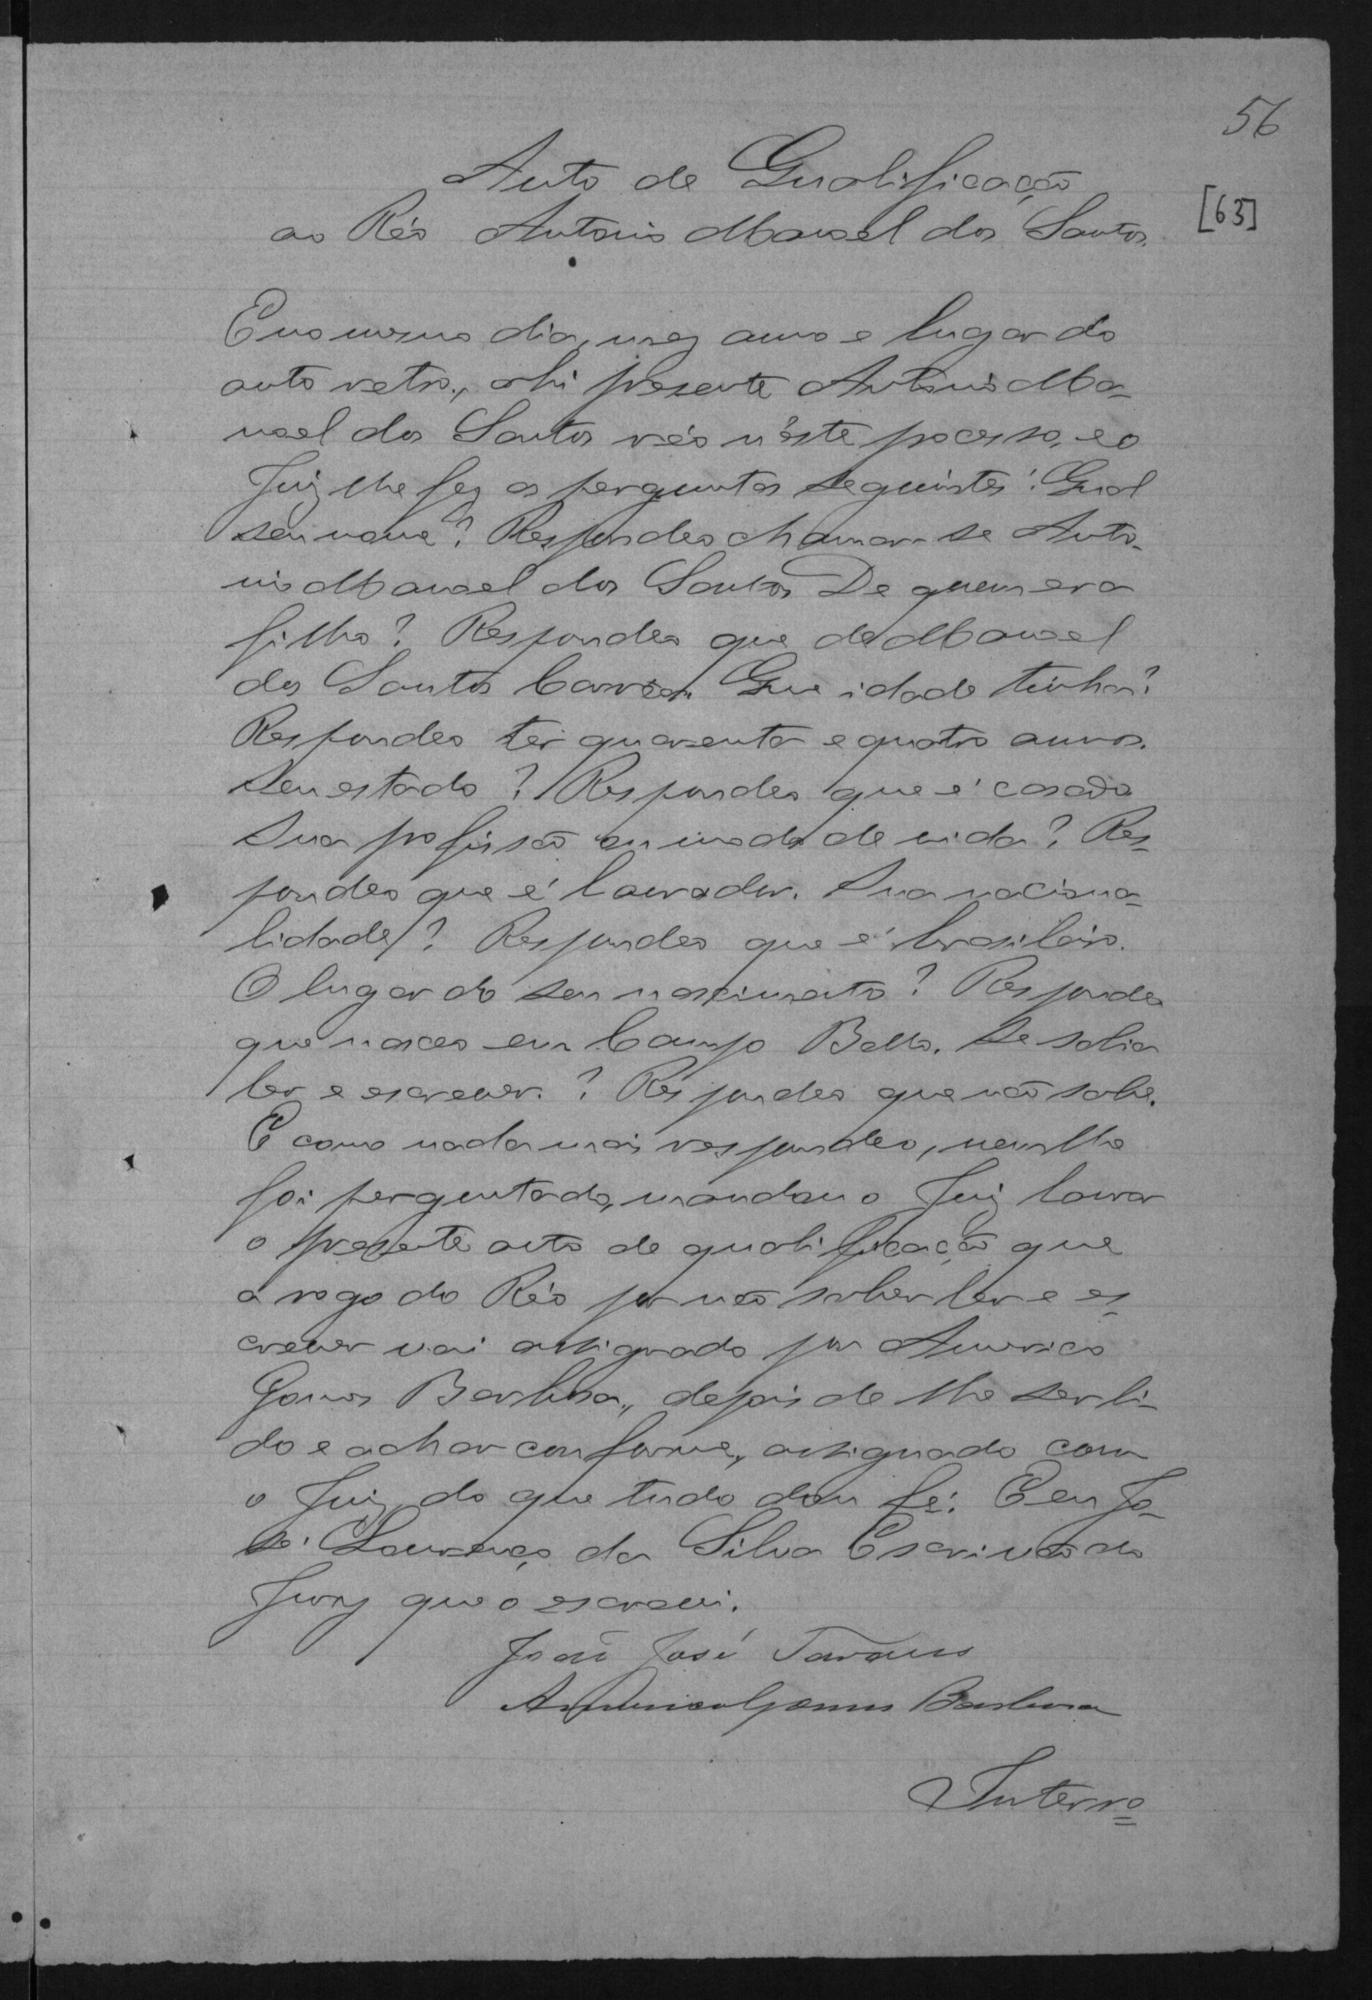 56
Auto de Qualificação
[63]
ao Réo Antonio Manoel dos Santos.
E no mesmo dia, mez anno e lugar do
auto retro, ahi presente Antonio Ma-
noel dos Santos réo n'este processo, e o
Juiz lhe fez as perguntas seguintes: Qual
seu nome? Respondeo chamar-se Anto-
nio Manoel dos Santos De quem era
filho? Respondeo que de Manoel
dos Santos Que idade tinha?
Respondeo ter quarenta e quatro annos.
Seu estado? Respondeo que é casado
Sua profissão ou modo de vida? Res-
pondeo que é lavrador. Sua naciona-
lidade? Respondeo que é brasileiro.
O lugar do seu nascimento? Respondeo
que nasceo em Campo Bello. Se sabia
ler e escrever.? Respondeo que não sabe.
E como nada mais respondeo, nem lhe
foi perguntado, mandou o Juiz lavrar
o presente auto de qualificação que
a rogo do Réo por não saber ler e es-
crever vai assignado por Americo
Gomes Barbosa, depois de lhe ser li-
do e achar conforme, assignado com
o Juiz, do que tudo dou fé. E eu Jo-
sé Lourenço da Silva Escrivão do
Jury que o escrevi.
João José Tavares
Americo Gomes Barbosa
Interro